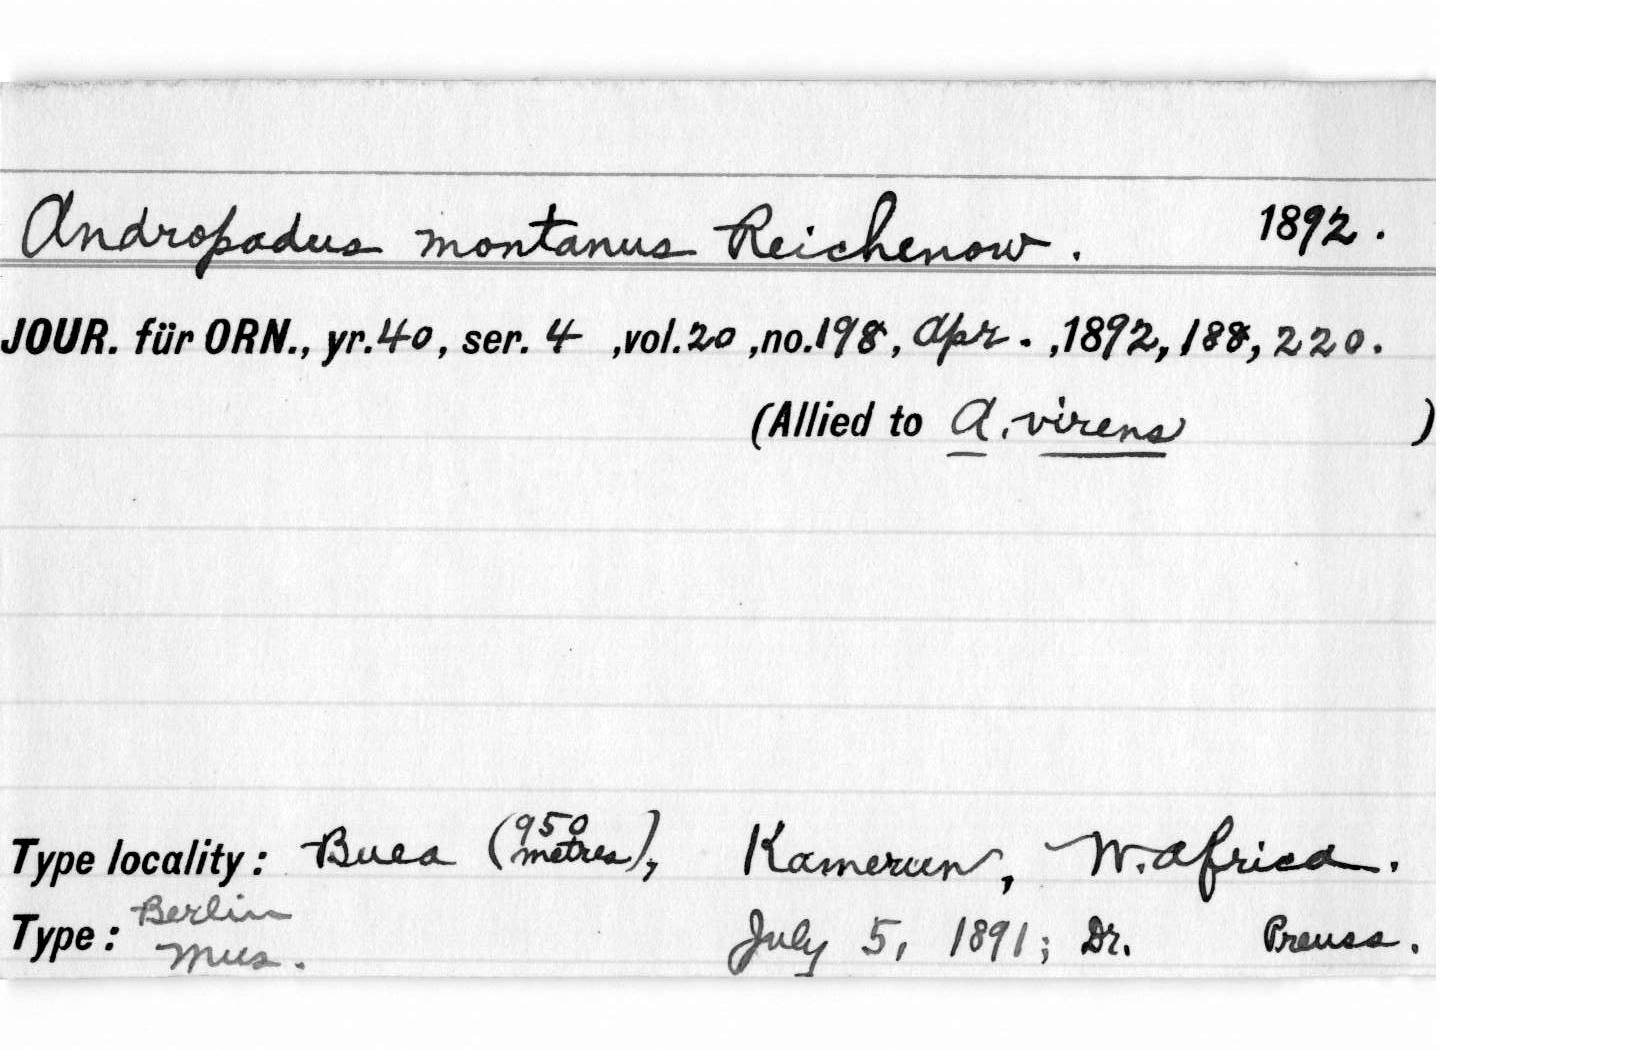 Andropadus montanus Reichenow. 1892.
JOUR. für ORN., yr. 40, ser. 4 ,vol. 20 ,no. 198, Apr. ., 1892, 188, 220.
(Allied to A. virens )
Type locality: Buea (950 metres), Kamerun, W. Africa.
Type: Berlin Mus. July 5, 1891; Dr. Preuss.